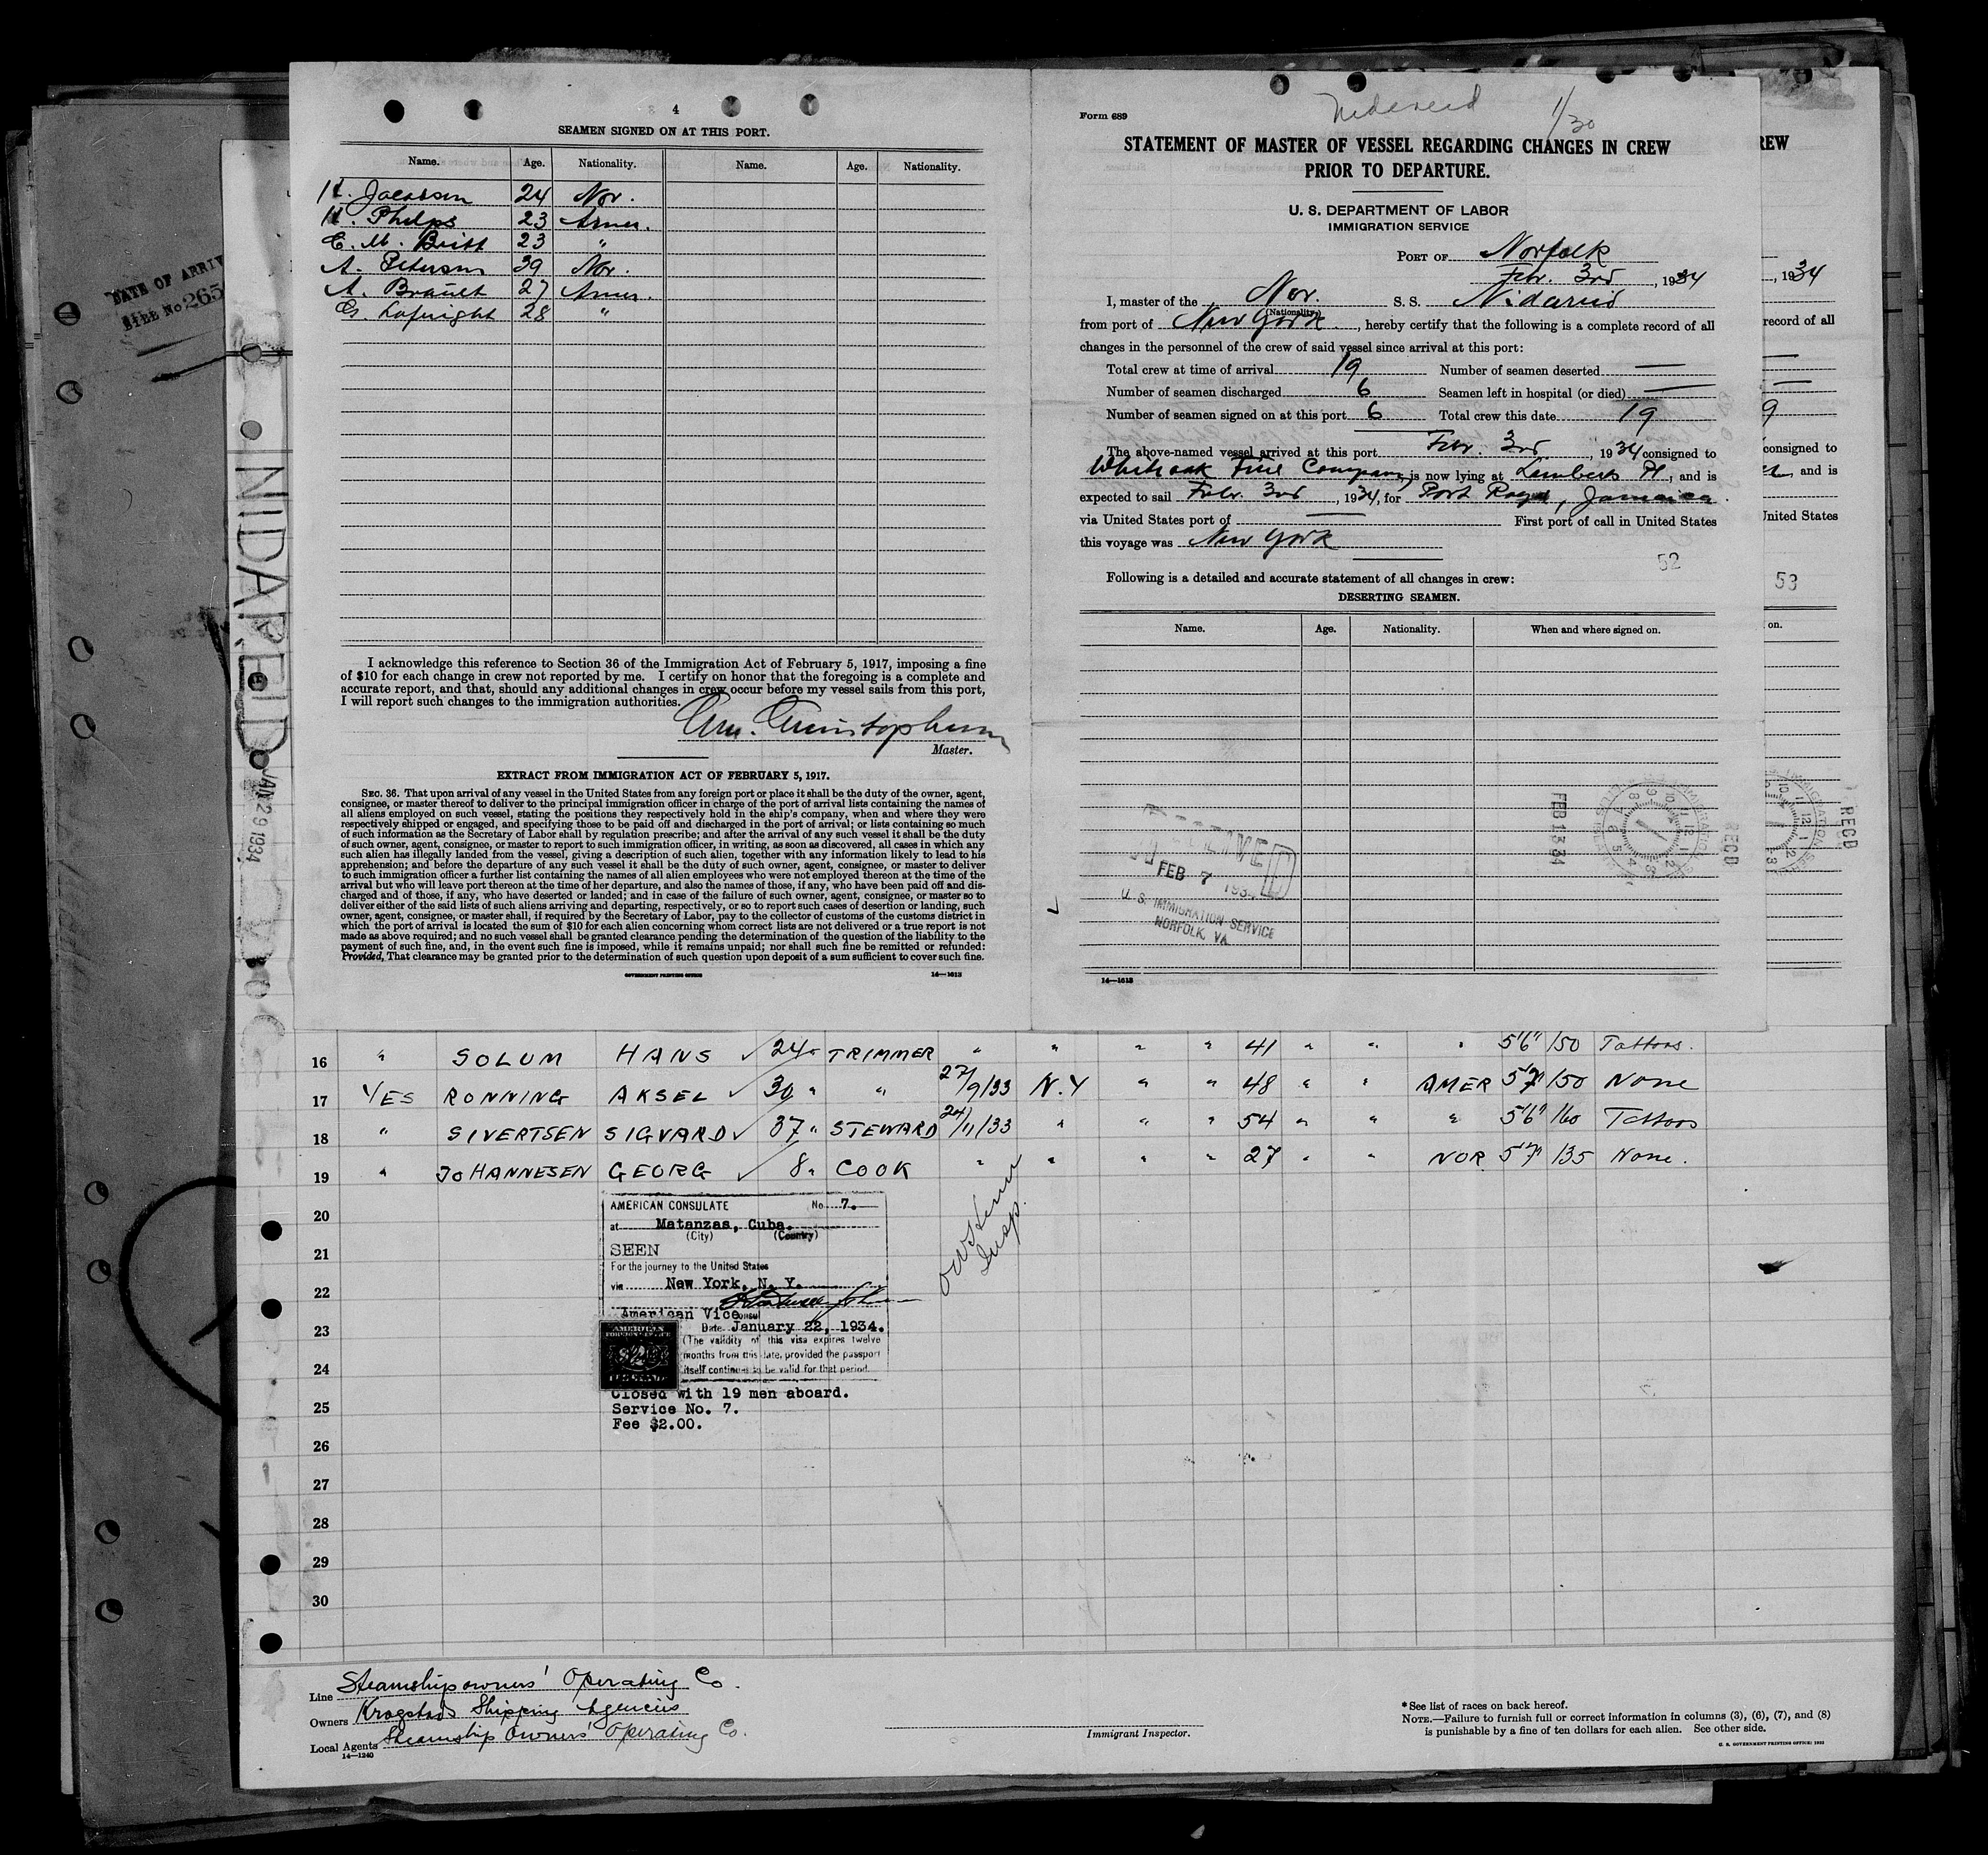 4
SEAMEN SIGNED ON AT THIS PORT.
Name. Age. Nationality. Name. Age. Nationality.
Jacobsen 24 Nor.
H. Phelps 23 Amer.
E. M. Britt 23 "
A. Petersen 39 Nor.
A. Brault 27 Amer.
28 "
I acknowledge this reference to Section 36 of the Immigration Act of February 5, 1917, imposing a fine
of $10 for each change in crew not reported by me. I certify on honor that the foregoing is a complete and
accurate report, and that, should any additional changes in crew occur before my vessel sails from this port,
I will report such changes to the immigration authorities.
Master.
EXTRACT FROM IMMIGRATION ACT OF FEBRUARY 5, 1917.
SEC. 36. That upon arrival of any vessel in the United States from any foreign port or place it shall be the duty of the owner, agent,
consignee, or master thereof to deliver to the principal immigration officer in charge of the port of arrival lists containing the names of
all aliens employed on such vessel, stating the positions they respectively hold in the ship's company, when and where they were
respectively shipped or engaged, and specifying those to be paid off and discharged in the port of arrival; or lists containing so much
of such information as the Secretary of Labor shall by regulation prescribe; and after the arrival of any such vessel it shall be the duty
of such owner, agent, consignee, or master to report to such immigration officer, in writing, as soon as discovered, all cases in which any
such alien has illegally landed from the vessel, giving a description of such alien, together with any information likely to lead to his
apprehension; and before the departure of any such vessel it shall be the duty of such owner, agent, consignee, or master to deliver
to such immigration officer a further list containing the names of all alien employees who were not employed thereon at the time of the
arrival but who will leave port thereon at the time of her departure, and also the names of those, if any, who have been paid off and dis-
charged and of those, if any, who have deserted or landed; and in case of the failure of such owner, agent, consignee, or master so to
deliver either of the said lists of such aliens arriving and departing, respectively, or so to report such cases of desertion or landing, such
owner, agent, consignee, or master shall, if required by the Secretary of Labor, pay to the collector of customs of the customs district in
which the port of arrival is located the sum of $10 for each alien concerning whom correct lists are not delivered or a true report is not
made as above required; and no such vessel shall be granted clearance pending the determination of the question of the liability to the
payment of such fine, and, in the event such fine is imposed, while it remains unpaid; nor shall such fine be remitted or refunded:
Provided, That clearance may be granted prior to the determination of such question upon deposit of a sum sufficient to cover such fine.
GOVERNMENT PRINTING OFFICE 14—1613
Form 689
1/30
STATEMENT OF MASTER OF VESSEL REGARDING CHANGES IN CREW
PRIOR TO DEPARTURE.
U. S. DEPARTMENT OF LABOR
IMMIGRATION SERVICE
PORT OF Norfolk
Febr. 3rd, 1934
I, master of the Nor. S. S. Nidareid
(Nationality)
from port of New York, hereby certify that the following is a complete record of all
changes in the personnel of the crew of said vessel since arrival at this port:
Total crew at time of arrival 19 Number of seamen deserted —
Number of seamen discharged 6 Seamen left in hospital (or died) —
Number of seamen signed on at this port 6 Total crew this date 19
The above-named vessel arrived at this port Febr. 3rd, 1934 consigned to
Company, is now lying at Lamberts Pt, and is
expected to sail Febr. 3rd, 1934, for Port Royal, Jamaica.
via United States port of — First port of call in United States
this voyage was New York
52
Following is a detailed and accurate statement of all changes in crew:
DESERTING SEAMEN.
Name. Age. Nationality. When and where signed on.
RECEIVED
FEB 7 193
U. S. IMMIGRATION SERVICE
NORFOLK, VA.
FEB 13 34
RECD
14—1613
REW
, 1934
record of all
9
consigned to
and is
United States
53
on.
RECD
DATE OF ARRIV
FILE No 265
NIDAREID
JAN 29 1934
16 " SOLUM HANS ✓ 24 " TRIMMER " " " " 41 " " " 5'6" 150 Tattoos.
17 YES RONNING AKSEL ✓ 30 " " 27/9/33 N.Y " " 48 " " AMER 5'7" 150 None
18 " SIVERTSEN SIGVARD ✓ 37 " STEWARD 24/11/33 " " " 54 " " " 5'6" 160 Tattoos
19 " JOHANNESEN GEORG ✓ 8 " COOK " " " " 27 " " NOR 5'7" 135 None.
20
21
22
23
24
25
26
27
28
29
30
AMERICAN CONSULATE No 7.
at Matanzas, Cuba.
(City) (Country)
SEEN
For the journey to the United States
via New York, N. Y.
American Vice Consul
Date January 22, 1934.
(The validity of this visa expires twelve
months from this date, provided the passport
itself continues to be valid for that period.
AMERICAN
FOREIGN SERVICE
Closed with 19 men aboard.
Service No. 7.
Fee $2.00.
Insp.
Line Steamship owners' Operating Co.
Owners Krogstads Shipping Agencies
Local Agents Steamship Owners' Operating Co.
14—1240
Immigrant Inspector.
* See list of races on back hereof.
NOTE.—Failure to furnish full or correct information in columns (3), (6), (7), and (8)
is punishable by a fine of ten dollars for each alien. See other side.